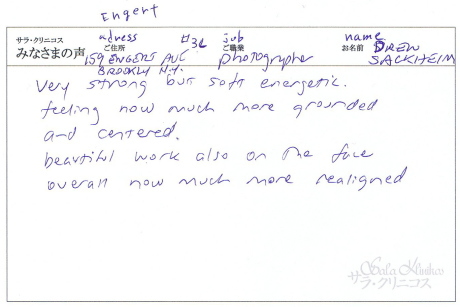 Engert
adress #3L job name
サラ・クリニコス ご住所 ご職業 お名前 DREW
みなさまの声 159 ENGERT AVE photographer SACKHEIM
BROOKLY N.Y.
Very strong but soft energetic.
feeling now much more grounded
and centered.
beautiful work also on the face
overall now much more realigned
Sala Klinikos
サラ・クリニコス